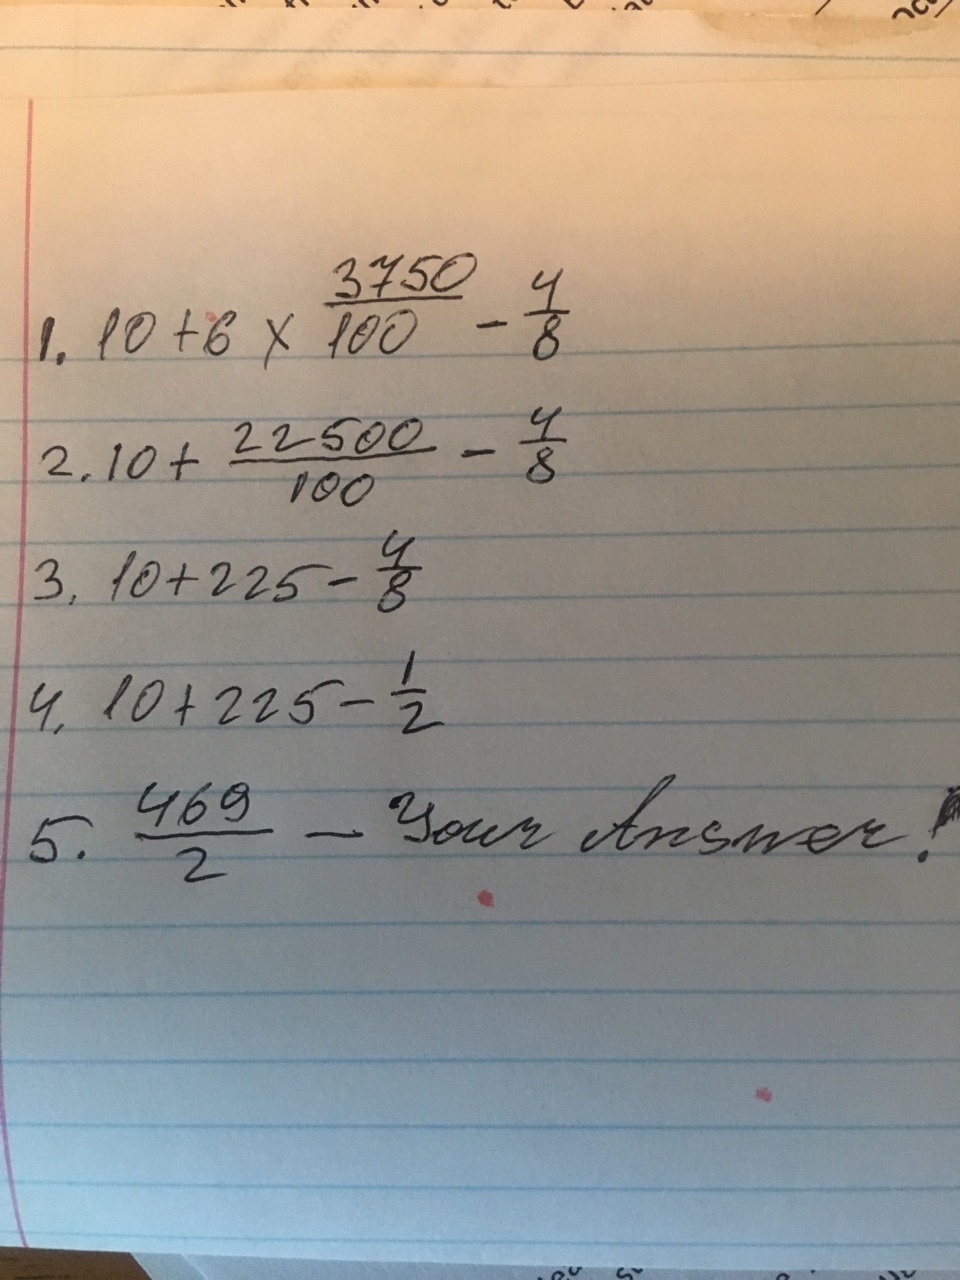 1. 10 + 6 × 3750/100 - 4/8
2. 10 + 22500/100 - 4/8
3. 10 + 225 - 4/8
4. 10 + 225 - 1/2
5. 469/2 — Your Answer!